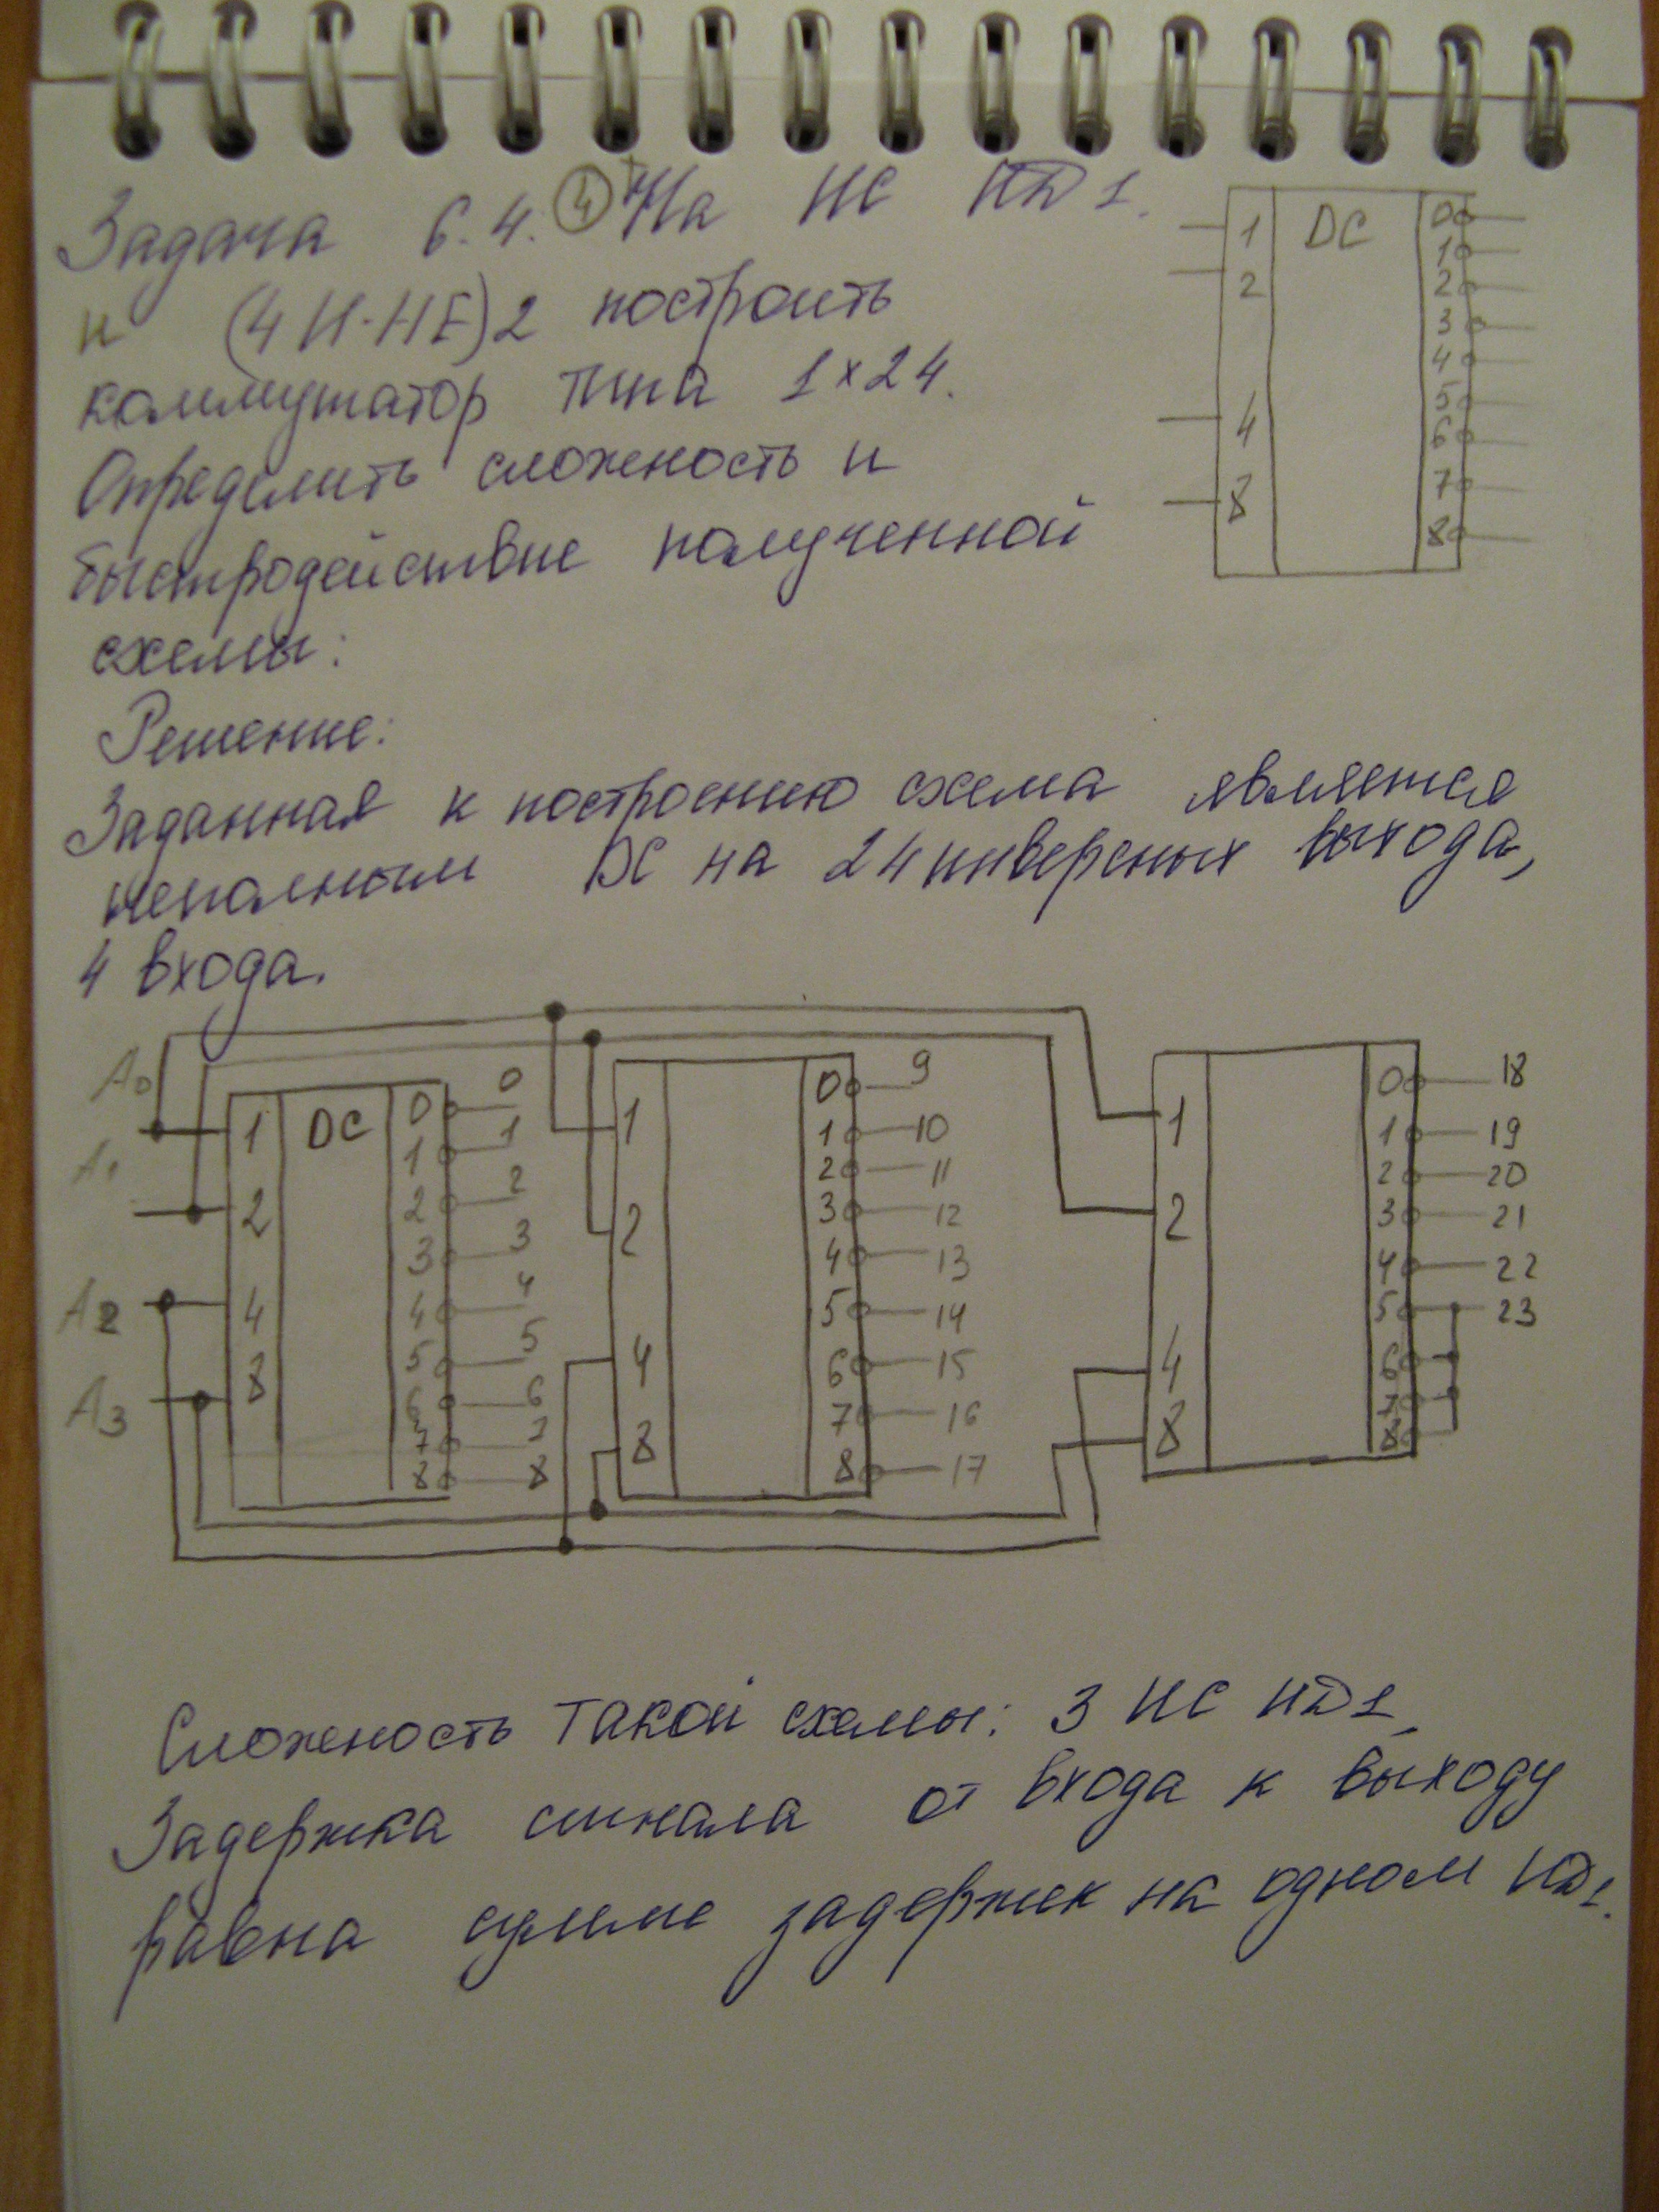 Задача 6.4. ④ На ИС ИД1.
и (4И-НЕ)2 построить
коммутатор типа 1×24.
Определить сложность и
быстродействие полученной
схемы:
DC
1
2
4
8
0
1
2
3
4
5
6
7
8
Решение:
Заданная к построению схема является
неполным DC на 24 инверсных выхода,
4 входа.
A0
A1
A2
A3
1 DC
2
4
8
0 0
1 1
2 2
3 3
4 4
5 5
6 6
7 7
8 8
1
2
4
8
0 9
1 10
2 11
3 12
4 13
5 14
6 15
7 16
8 17
1
2
4
8
0 18
1 19
2 20
3 21
4 22
5 23
6
7
8
Сложеность такой схемы: 3 ИС ИД1.
Задержка сигнала от входа к выходу
равна сумме задержек на одном ИД1.